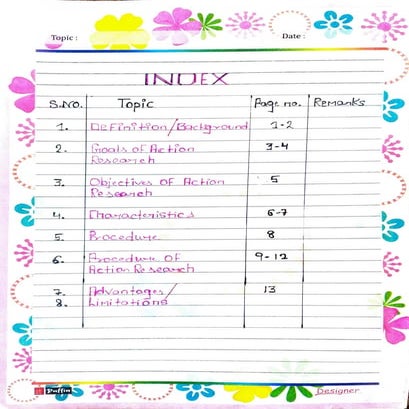 Topic :
Date :
INDEX
S.No. Topic Page no. Remarks
1. Definition/Background 1-2
2. Goals of Action 3-4
Research
3. Objectives of Action 5
Research
4. Characteristics 6-7
5. Procedure 8
6. Procedure of 9-12
Action Research
7. Advantages/ 13
8. Limitations
Puffin Designer